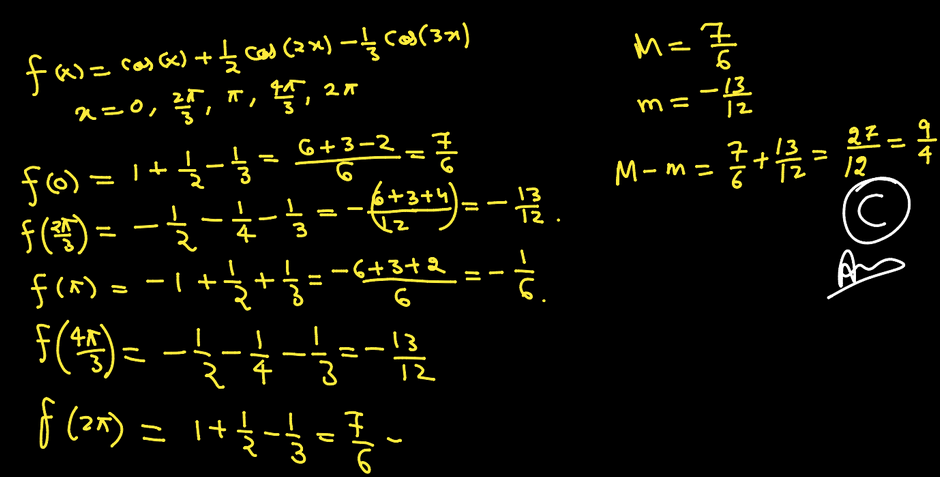 f(x) = cos(x) + 1/2 cos(2x) - 1/3 cos(3x)
x = 0, 2π/3, π, 4π/3, 2π
f(0) = 1 + 1/2 - 1/3 = (6+3-2)/6 = 7/6
f(2π/3) = -1/2 - 1/4 - 1/3 = -(6+3+4)/12 = -13/12.
f(π) = -1 + 1/2 + 1/3 = (-6+3+2)/6 = -1/6.
f(4π/3) = -1/2 - 1/4 - 1/3 = -13/12
f(2π) = 1 + 1/2 - 1/3 = 7/6 -
M = 7/6
m = -13/12
M - m = 7/6 + 13/12 = 27/12 = 9/4
C
Ans